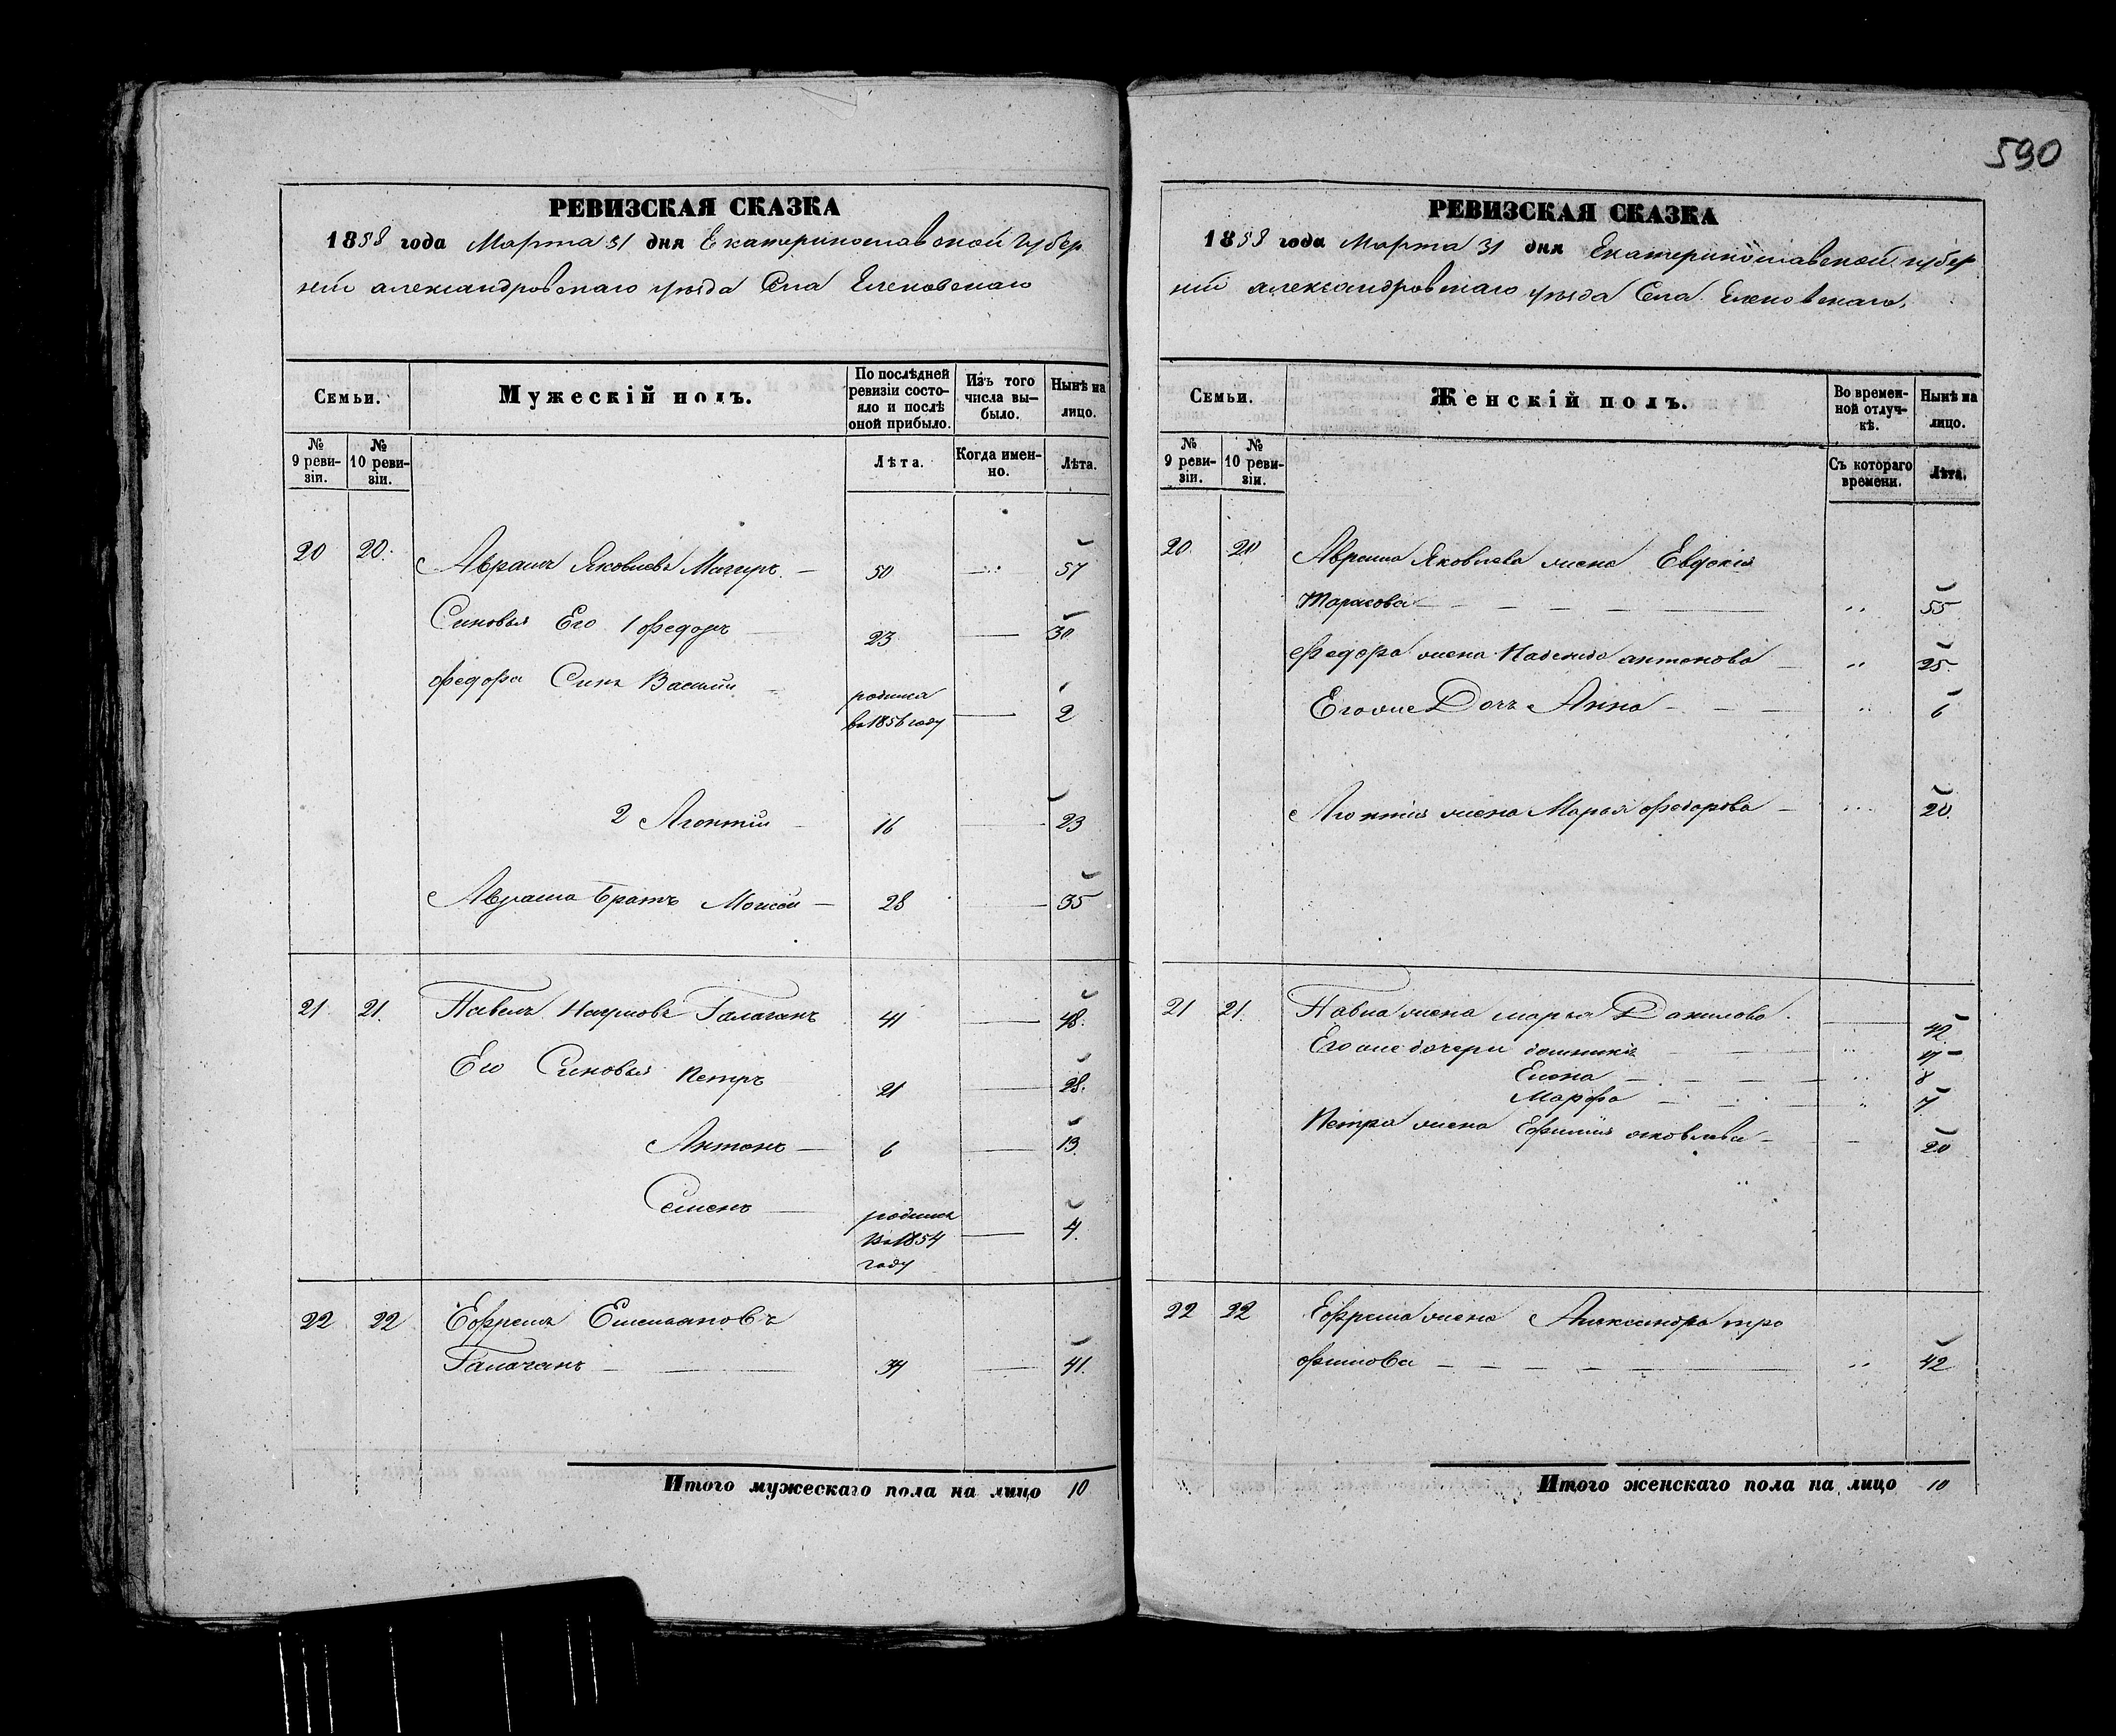 590
РЕВИЗСКАЯ СКАЗКА
1858 года Марта 31 дня Екатеринославской Губер
ніи александровскаго уезда Села Еленовскаго
Семьи.
Мужескій полъ.
По послѣдней ревизіи состояло и послѣ оной прибыло.
Изъ того числа выбыло.
Нынѣ на лицо.
№ 9 ревизіи.
№ 10 ревизіи.
Лѣта.
Когда именно.
Лѣта.
20 20. Аврамъ Яковлевъ Магуръ — 50 — 57
Синовья Его 1 Федоръ 23 — 30
Федора Синъ Василий родился
въ 1856 году — 2
2 Леонтій 16 — 23
Аврама Братъ Моисей — 28 — 35
21 21. Павелъ Наумовъ Галаганъ 41 — 48.
Его Синовья Петръ 21 — 28.
Антонъ — 6 — 13.
Семенъ — родился
въ 1854 — 4.
году
22 22 Ефремъ Емельяновъ
Галаганъ — 34 — 41.
Итого мужескаго пола на лицо 10
РЕВИЗСКАЯ СКАЗКА
1858 года Марта 31 дня Екатеринославской губер
ніи александровскаго уезда Села Еленовскаго.
Семьи.
Женскій полъ.
Во временной отлучкѣ.
Нынѣ на лицо.
№ 9 ревизіи.
№ 10 ревизіи.
Съ котораго времени.
Лѣта.
20. 20 Аврама Яковлева жена Евдокія
Тарасова — — — — — " 55
Федора жена Надежда антонова — " 25.
Егоже Дочь Анна — — — " 6
Леонтія жена Марья Федорова — " 20.
21 21. Павла жена марья Данилова. — 42
Егоже дочери
Елена — — — — " 8
Марфа — — — "
Петра жена Ефимия яковлева — — 20
22 22 Ефрема жена Александра тро
фимова — — — — — " 42
Итого женскаго пола на лицо 10